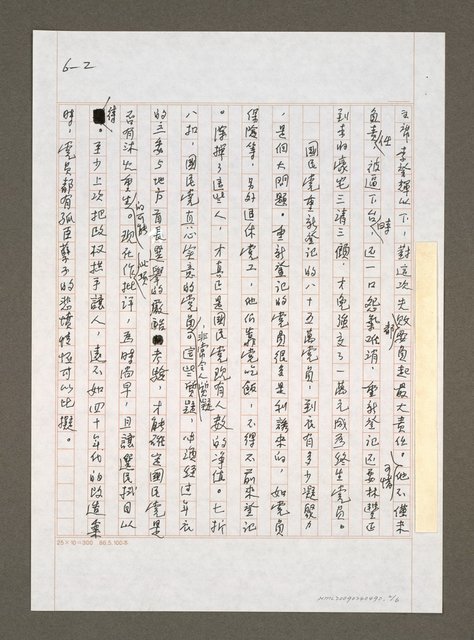 6-2
主席李登輝以下，對這次失敗要負起最大責任。他不僅未
負責任，被逼下台時還一口怨氣難消，重新登記還要林豐正
到李的豪宅三請三顧，才免強交了一萬元成為終生黨員。
國民黨重新登記的八十五萬黨員，到底有多少凝聚力
，是個大問題。重新登記的黨員很多是利誘來的，如黨員
保險等，另外退休黨工，他們靠黨吃飯，不得不前來登記
。除掉了這些人，才真正是國民黨現有人數的淨值。七折
八扣，國民黨真心實意的黨員，非常令人質疑，必須經過年底
的立委與地方首長選舉的嚴酷考驗，才能確定國民黨是
否有沐火重生的可能。現在作此項批評，為時尚早，且讓選民拭目以
待。至少上次把政權拱手讓人，遠不如四十年代的改造氣
時，黨員都有孤臣孽子的悲憤性恒可以比擬。
25×10=300 86.5.100本